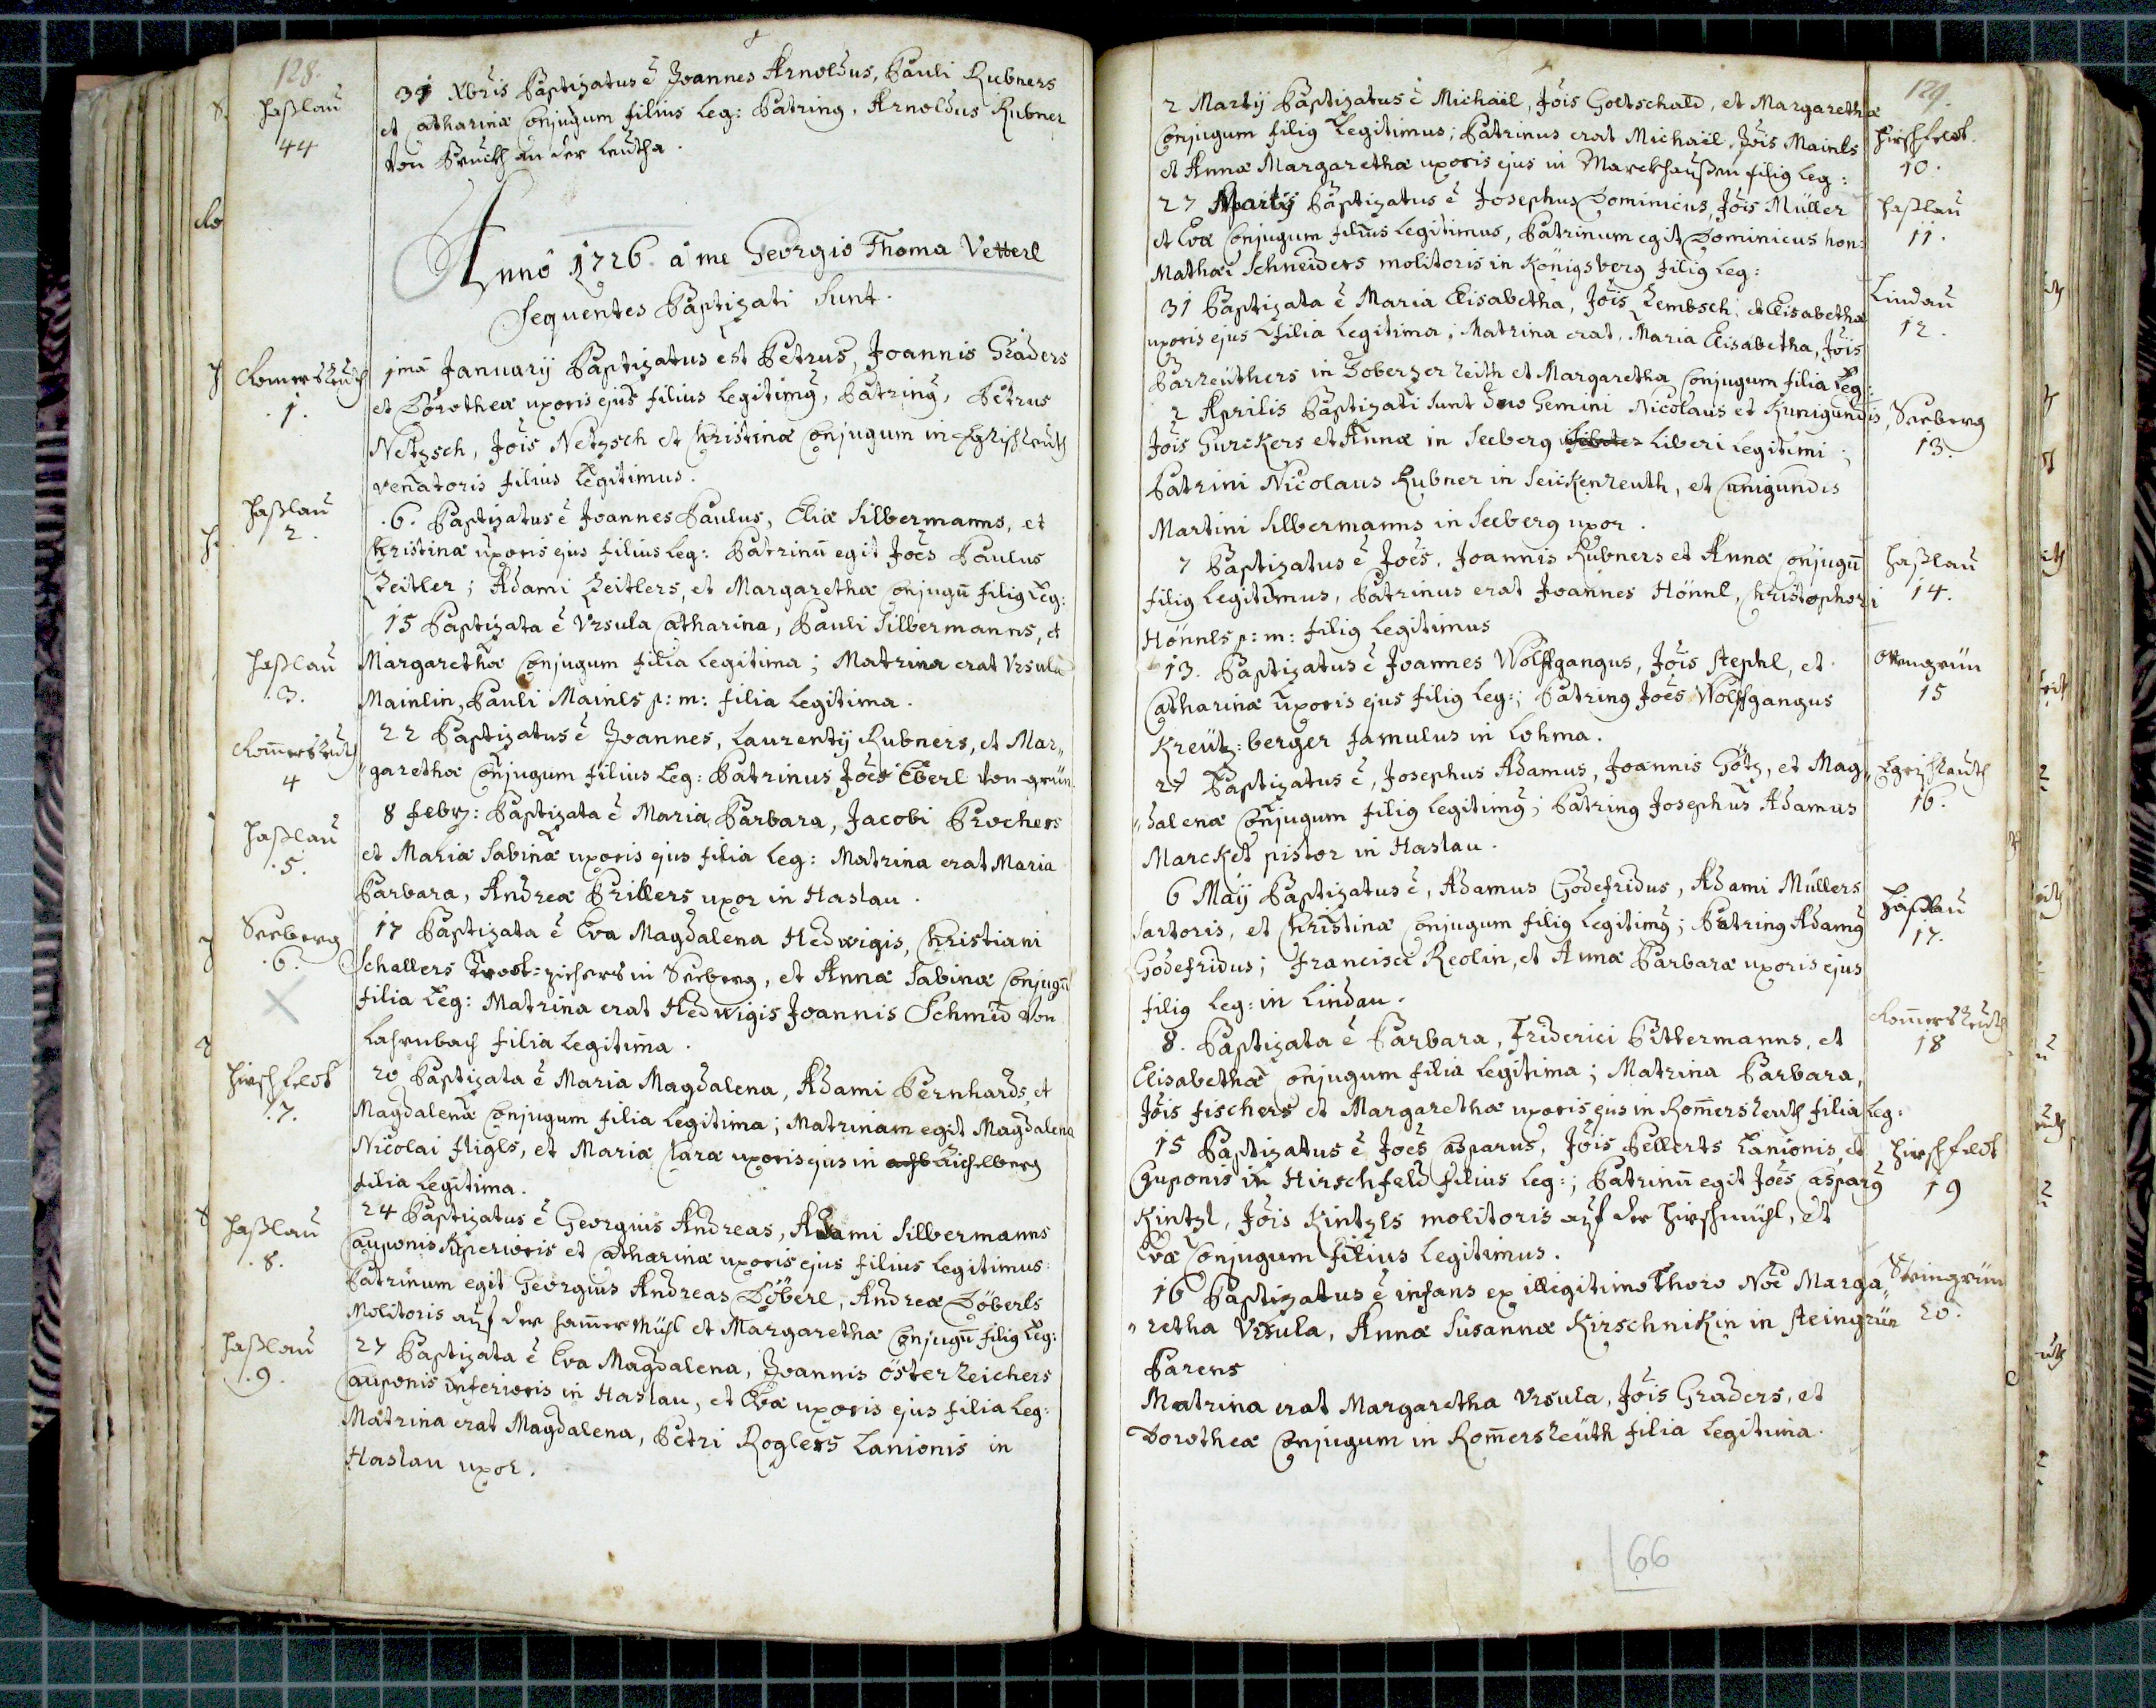 128.
Haßlau
44
31 Xbris Baptizatus ẽ Joannes Arnoldus, Pauli Rubners
et Catharinæ Conjugum filius leg: Patrinus, Arnoldus Rubner
von Bruckh an der Leutha.
Anno 1726. à me Georgio Thoma Vetterl
Sequentes Baptizati Sunt.
Romersreuth
1.
1mâ Januarij Baptizatus est Petrus, Joannis Graders
et Dorotheæ uxoris ejus filius Legitimus, Patrinus, Petrus
Netzsch, Jõis Netzsch et Christinæ Conjugum in
venatoris filius Legitimus.
Haßlau
2.
6. Baptizatus ẽ Joannes Paulus, Eliæ Silbermanns, et
Christinæ uxoris ejus filius leg: Patrinũ egit Joẽs Paulus
Zeitler; Adami Zeitlers, et Margarethæ Conjugũ filius Leg:
Haßlau
3.
15 Baptizata ẽ Vrsula Catharina, Pauli Silbermanns, et
Margarethæ Conjugum filia Legitima; Matrina erat Vrsula
Mainlin, Pauli Mainls p: m: filia Legitima.
Rom̃ersreuth
4
22 Baptizatus ẽ Joannes, Laurentij Rubners, et Mar„
„garethæ Conjugum filius Leg: Patrinus Joẽs Eberl von grün.
Haßlau
5.
8 febr: Baptizata ẽ Maria Barbara, Jacobi Prochers
et Mariæ Sabinæ uxoris ejus filia Leg: Matrina erat Maria
Barbara, Andreæ Prillers uxor in Haslau.
Seeberg
6.
17 Baptizata ẽ Eva Magdalena Hedwigis, Christiani
Schallers in Seeberg, et Annæ Sabinæ Conjugũ
filia Leg: Matrina erat Hedwigis Joannis Schmid von
Lahrnbach filia Legitima.
Hirschfeldt
7.
20 Baptizata ẽ Maria Magdalena, Adami Bernhards, et
Magdalenæ Conjugum filia Legitima; Matrinam egit Magdalena
Nicolai Higls, et Mariæ Claræ uxoris ejus in Eichelberg
filia Legitima.
Haßlau
8.
24 Baptizatus ẽ Georgius Andreas, Adami Silbermanns
Cauponis Superioris et Catharinæ uxoris ejus filius Legitimus:
Patrinum egit Georgius Andreas Döberl, Andreæ Döberls
Molitoris auf der Ham̃er Mühl et Margarethæ Conjugũ filius Leg:
Haßlau
9.
27 Baptizata ẽ Eva Magdalena, Joannis österreichers
Cauponis inferioris in Haslau, et Evæ uxoris ejus filia Leg:
Matrina erat Magdalena, Petri Roglers Lanionis in
Haslau uxor.
129.
2 Martij Baptizatus ẽ Michaël, Jõis Gottschald, et Margarethæ
Conjugum filius Legitimus; Patrinus erat Michaël, Jõis Mainls
et Annæ Margarethæ uxoris ejus in Markhaußen filius leg:
Hirschfeldt.
10.
27 Martij Baptizatus ẽ Josephus Dominicus, Jõis Müller
et Evæ Conjugum filius Legitimus, Patrinum egit Dominicus hon:
Mathæi Schneiders molitoris in Königsberg filius Leg:
Haßlau
11.
31 Baptizata ẽ Maria Elisabetha, Jõis Lembsch, et Elisabethæ
uxoris ejus filia Legitima; Matrina erat Maria Elisabetha, Jõis
Barreuthers in Doberzerreith et Margaretha Conjugum filia Leg:
Lindau
12.
2 Aprilis Baptizati sunt duo Gemini Nicolaus et Kunigundis,
Jõis Gurckers et Annæ in Seeberg Liberi Legitimi;
Patrini Nicolaus Rubner in Seickenreuth, et Cunigundis
Martini Silbermanns in Seeberg uxor.
Seeberg
13.
7 Baptizatus ẽ Joẽs, Joannis Rubners et Annæ Conjugũ
filius Legitimus, Patrinus erat Joannes Hönnl, Christophori
Hönnls p: m: filius Legitimus
Haßlau
14.
13. Baptizatus ẽ Joannes Wolffgangus, Jõis Stephl, et
Catharinæ uxoris ejus filius Leg:; Patrinus Joẽs Wolffgangus
Kreütz:berger famulus in Lohma.
Ottengrün
15
27 Baptizatus ẽ, Josephus Adamus, Joannis Götz, et Mag„
„dalenæ Conjugum filius Legitimus; Patrinus Josephus Adamus
Marcket pistor in Haslau.
16.
6 Maij Baptizatus ẽ, Adamus Godefridus, Adami Müllers
Sartoris, et Christinæ Conjugum filius Legitimus; Patrinus Adamus
Godefridus; Francisci Reolin, et Annæ Barbaræ uxoris ejus
filius Leg: in Lindau.
Haßlau
17.
8. Baptizata ẽ Barbara, Friderici Pittermanns, et
Elisabethæ Conjugum filia Legitima; Matrina Barbara,
Jõis fischers et Margarethæ uxoris ejus in Rom̃ersreuth filia Leg:
Rom̃ersreuth
18
15 Baptizatus ẽ Joẽs Casparus, Jõis Pellerts Lanionis, et
Cauponis in Hirschfeld filius Leg:; Patrinũ egit Joẽs Casparus
Kintzl, Jõis Kintzls molitoris auf der Hirschmühl, et
Evæ Conjugum filius Legitimus.
Hirschfeldt
19
16 Baptizatus ẽ infans ex illegitimo Thoro Noẽ Marga„
„retha Vrsula, Annæ Susannæ Kirschnikin in Steingrün
Parens
Matrina erat Margaretha Vrsula, Jõis Graders, et
Dorotheæ Conjugum in Rom̃ersreüth filia Legitima.
Steingrün
20.
66